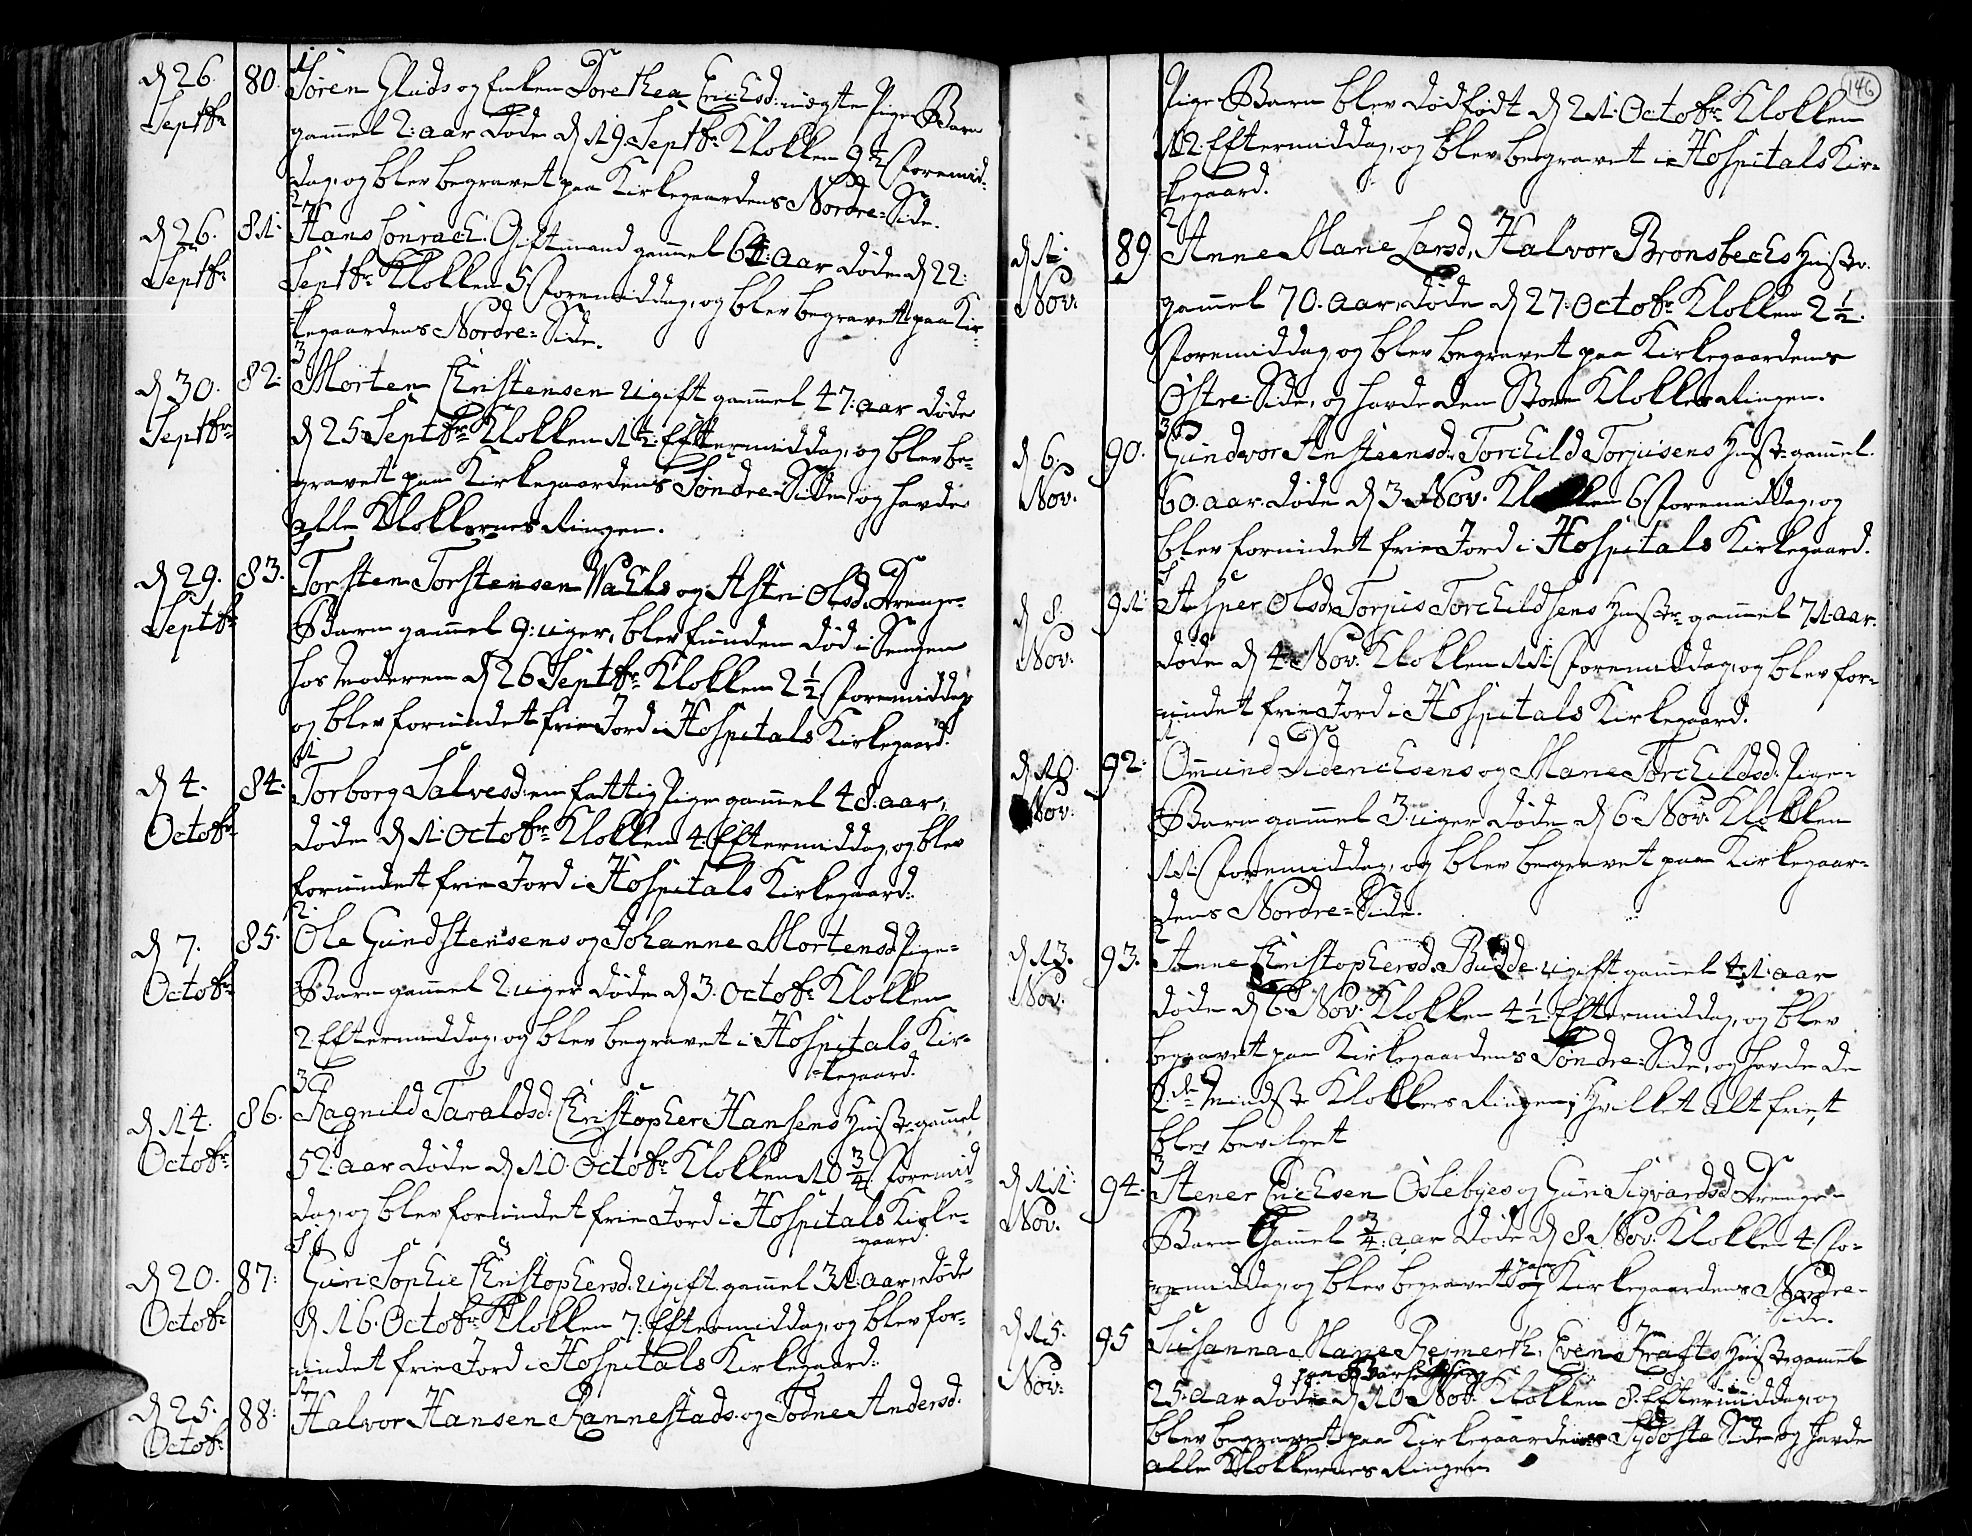 d 26. Septbr 80. Sören Gluds og Enken Dorethea Erichsd: uægte Pige Barn
gammel 2: aar døde d 19 Septbr Klokken 9½ Foremid-
dag, og blev begravet paa Kirkegaardens Nordre-Side.
d 26. Septbr 81: Hans Conrach. Giftmand gammel 64: aar døde d 22:
Septbr Klokken 5. Foremiddag, og blev begravet paa Kir-
kegaardens Nordre-Side.
d 30. Septbr 82: Morten Christensen ugift gammel 47: aar døde
d 25 Septbr Klokken 1½: Eftermiddag, og blev be-
gravet paa Kirkegaardens Søndre-Side, og havde
alle Klokkernes Ringen.
d 29. Septbr 83. Torsten Torstensen Wahls og Astri Olsd: Drenge-
Barn gammel 9: uger, blev funden død i Sengen
hos Moderen d 26 Septbr Klokken 2½ Foremiddag
og blev forundet frie Jord i Hospitals Kirkegaard.
d 4. Octobr 84: Torborg Salvesd: en fattig Pige gammel 48: aar,
døde d 1: Octobr Klokken 4: Eftermiddag, og blev
forundet frie Jord i Hospitals Kirkegaard:
d 7. Octobr 85: Ole Gundstensens og Johanne Mortensd: Pige-
Barn gammel 2: uger døde d 3. Octobr Klokken
2 Eftermiddag, og blev begravet i Hospitals Kir-
kegaard.
d 14. Octobr 86. Ragnild Taraldsd: Christopher Hansens Hustr: gammel
52: aar døde d 10. Octobr Klokken 10¾ Foremid-
dag, og blev forundet frie Jord i Hospitals Kirke-
gaard.
d 20. Octobr 87: Guri Sophie Christophersd: ugift gammel 31: aar, døde
d 16. Octobr Klokken 7: Eftermiddag, og blev for-
undet frie Jord i Hospitals Kirkegaard:
d 25. Octobr 88: Halvor Hansen Rannestads og Todne Andersd:
146
Pige Barn blev dødfødt d 21: Octobr Klokken
12. Eftermiddag, og blev begravet i Hospitals Kir-
kegaard.
d 1: Nov. 89. Anne Marie Larsd, Halvor Bronsbechs Hustr.
gammel 70. aar, døde d 27. Octobr Klokken 2½.
Foremiddag, og blev begravet paa Kirkegaardens
Østre Side, og havde den Store Klokkes Ringen.
d 6. Nov. 90. Gundvor Anstensd: Torchild Torjusens Hustr: gammel
60. aar. døde d 3 Nov. Klokken 6. Foremiddag, og
blev forundet frie Jord i Hospitals Kirkegaard.
d 8. Nov. 91: Asper Olsd: Torjus Torchildsens Hustr: gammel 71. aar.
døde d 4 Nov. Klokken 11: Foremiddag, og blev for-
undet frie Jord i Hospitals Kirkegaard.
d 10. Nov. 92: Omund Diderichsens og Marie Torchildsd: Pige-
Barn gammel 3: uger døde d 6 Nov. Klokken
11: Foremiddag, og blev begravet paa Kirkegaar-
dens Nordre-Side.
d 13. Nov. 93. Anne Christophersd: Budde ugift gammel 41: aar
døde d 6 Nov. Klokken 4½: Eftermiddag, og blev
begravet paa Kirkegaardens Søndre-Side, og havde de
2de Mindste Klokkers Ringen, hvilket alt friet
blev bevilget
d 11: Nov. 94. Stener Erichsen Oslebyes og Guri Sigvardsd Drenge-
Barn Gammel ¾: aar døde d 8 Nov. Klokken 4: Fo-
remiddag, og blev begravet paa Kirkegaardens Nordre-
Side.
d 15. Nov: 95 Susanna Marie Hust: gammel
25: aar døde d 10 Nov. Klokken 8. Eftermiddag, og
blev begravet paa Kirkegaardens Side og havde
alle Klokkernes Ringen